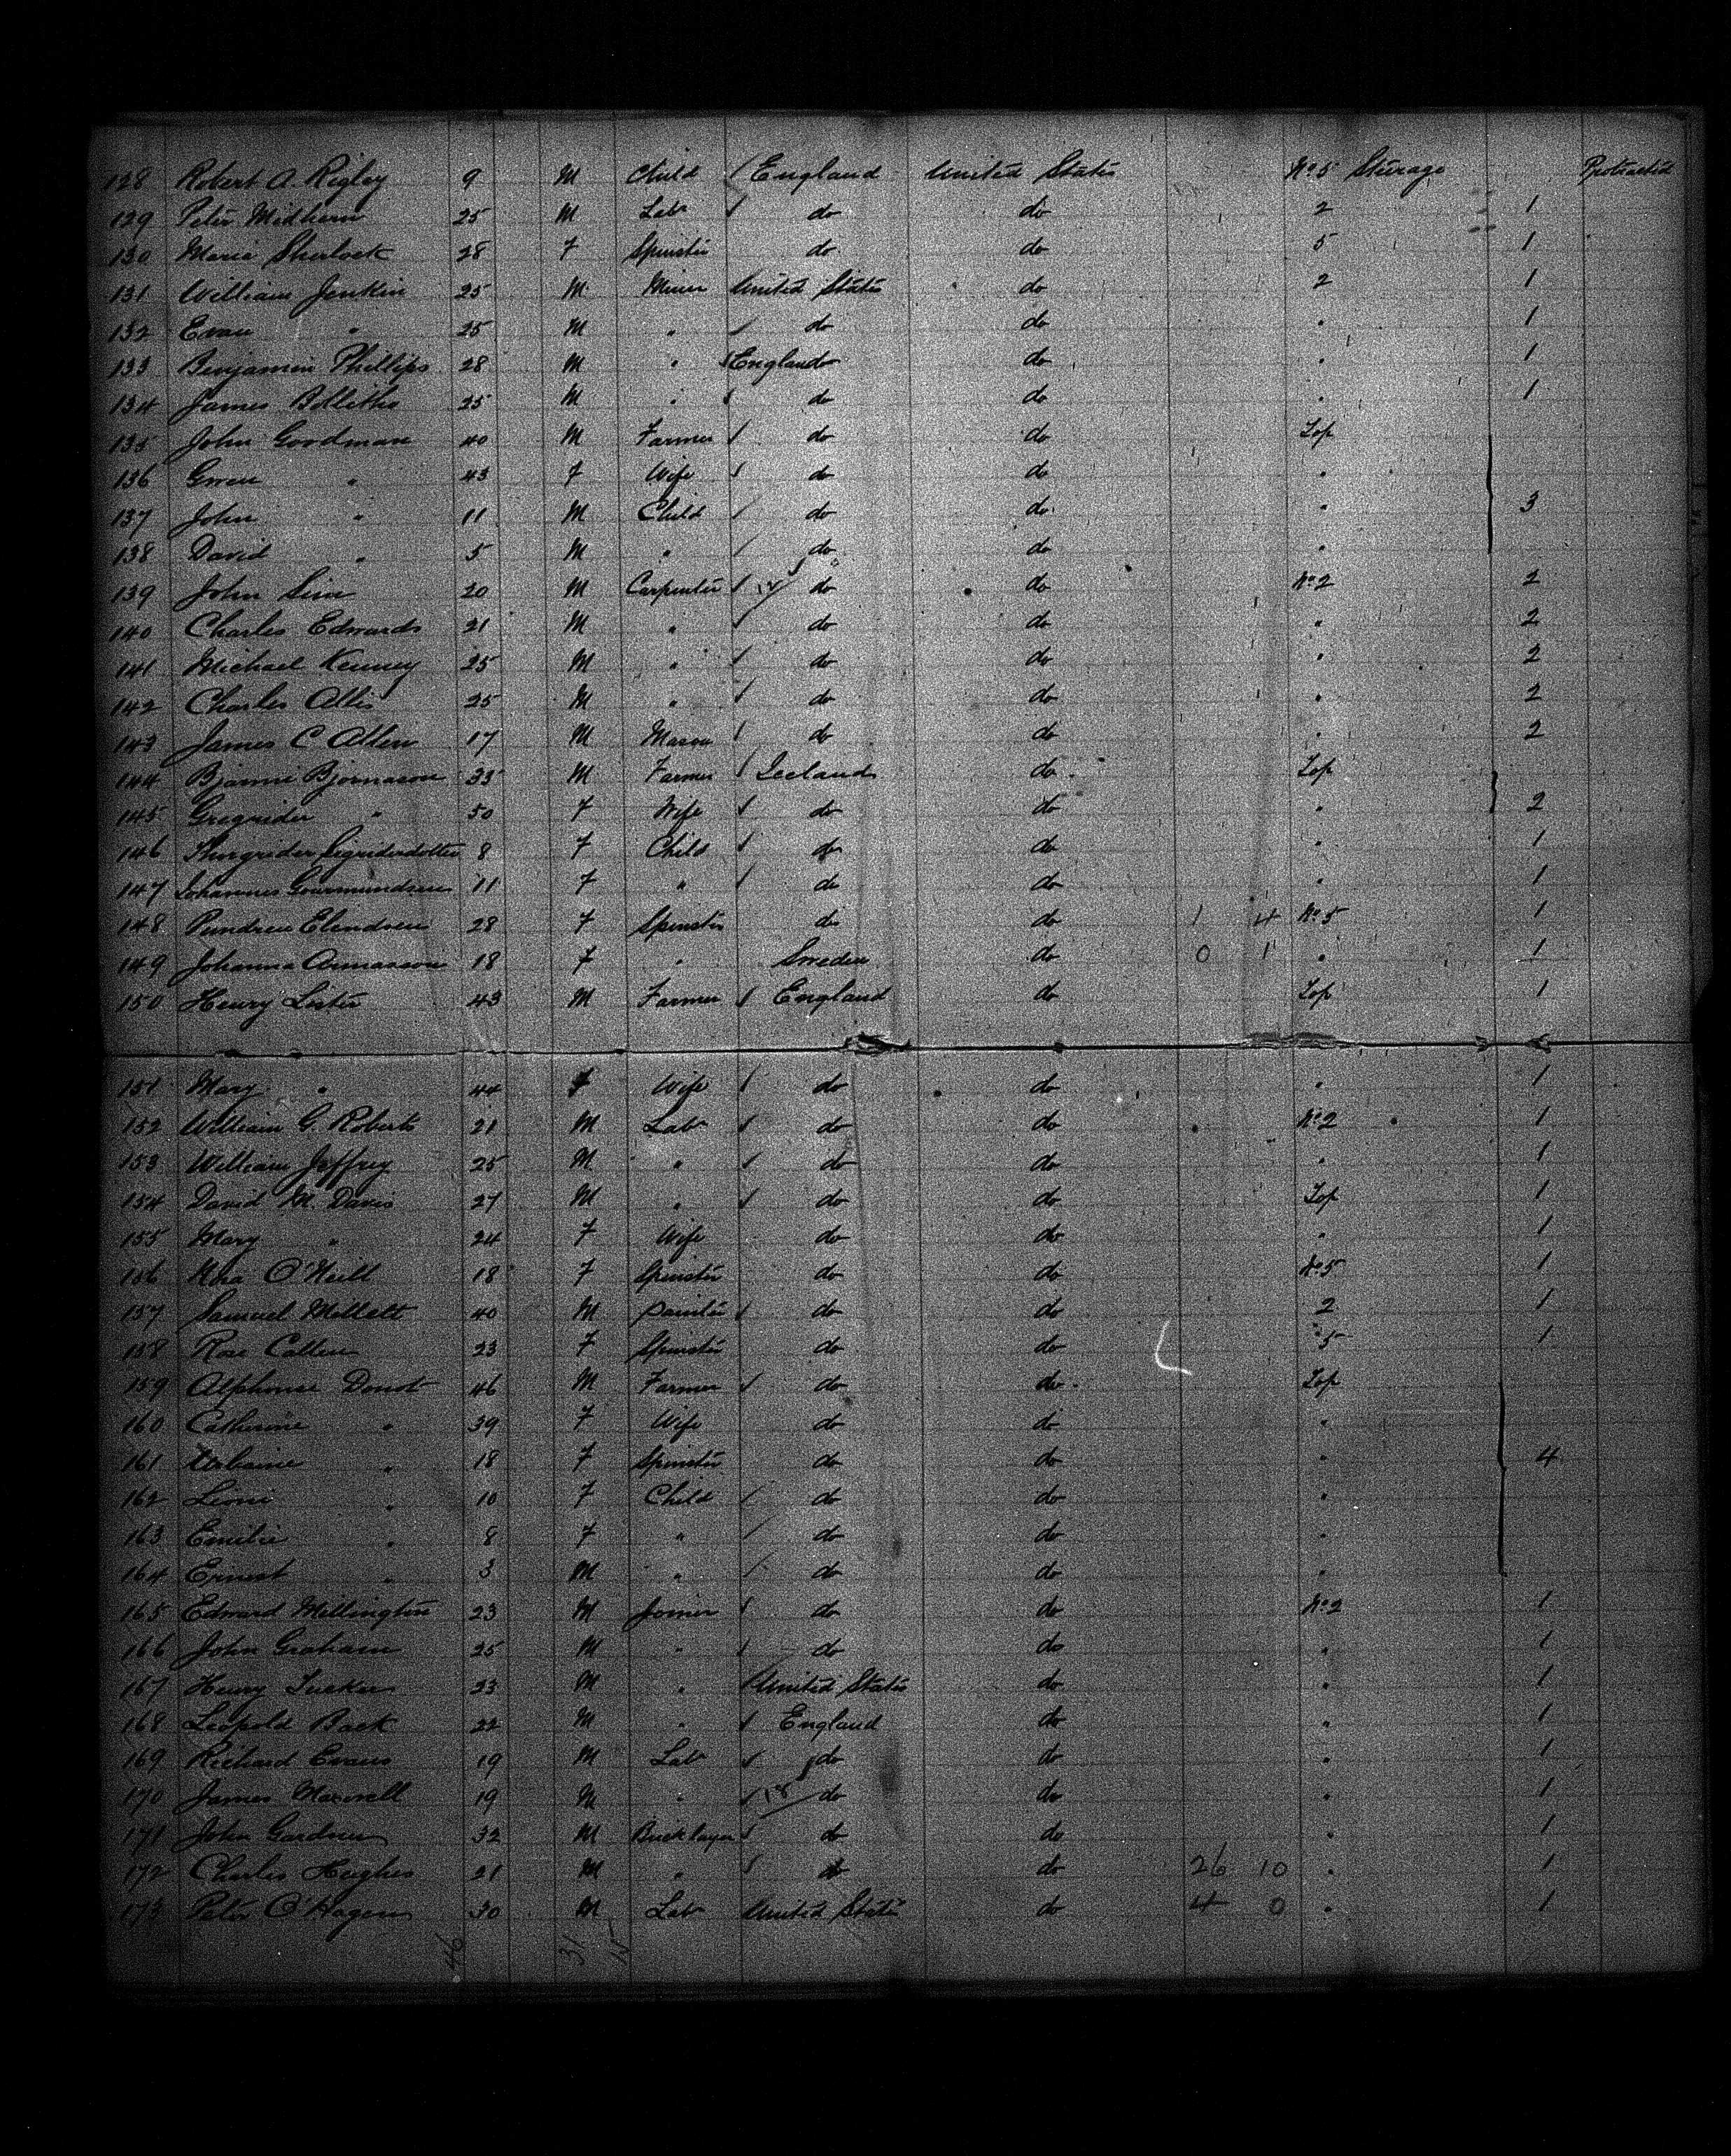 128 Robert A. Rigley 9 M Child England United States No 5 Sterage Protracted
129 Peter Midhern 25 M Labr do do 2 1
130 Maria Sherlock 28 F Spinster do do 5 1
131 William Jenkin 25 M Miner United States do 2 1
132 Evan " 25 M " do do " 1
133 Benjamin Phillips 28 M " England do " 1
134 James 25 M " do do " 1
135 John Goodman 40 M Farmer do do Top
136 Gwen " 43 F Wife do do "
137 John " 11 M Child do do " 3
138 David " 5 M " do do "
139 John Sim 20 M Carpenter do do No 2 2
140 Charles Edwards 21 M " do do " 2
141 Michael Kenney 25 M " do do " 2
142 Charles 25 M " do do " 2
143 James C Allen 17 M Mason do do " 2
144 Bjarni Bjornason 33 M Farmer Iceland do Top
145 " 50 F Wife do do " 2
146 8 F Child do do " 1
147 Johannes 11 F " do do " 1
148 28 F Spinster do do 1 4 No 5 1
149 Johanna 18 F " Sweden do 0 1 " 1
150 Henry Lester 43 M Farmer England do Top 1
151 Mary " 44 F Wife do do " 1
152 William G. Roberts 21 M Labr do do No 2 1
153 William Jeffrey 25 M " do do " 1
154 David M. Davis 27 M " do do Top 1
155 Mary " 24 F Wife do do " 1
156 O'Neill 18 F Spinster do do No 5 1
157 Samuel Mellett 40 M Painter do do 2 1
158 Rose Cullen 23 F Spinster do do " 5 1
159 Alphonse Donot 46 M Farmer do do Top
160 Catherine " 39 F Wife do do "
161 Urbanie " 18 F Spinster do do " 4
162 Leoni " 10 F Child do do "
163 Emilie " 8 F " do do "
164 Ernest " 3 M " do do "
165 Edward Millington 23 M Joiner do do No 2 1
166 John Graham 25 M " do do " 1
167 Henry Tucker 23 M " United States do " 1
168 Leopold Back 22 M " England do " 1
169 Richard Evans 19 M Labr do do " 1
170 James Maxwell 19 M " do do " 1
171 John Gardner 32 M Bricklayer do do " 1
172 Charles Hughes 21 M " do do 26 10 " 1
173 Peter O'Hagen 30 M Labr United States do 4 0 " 1
46 31 15